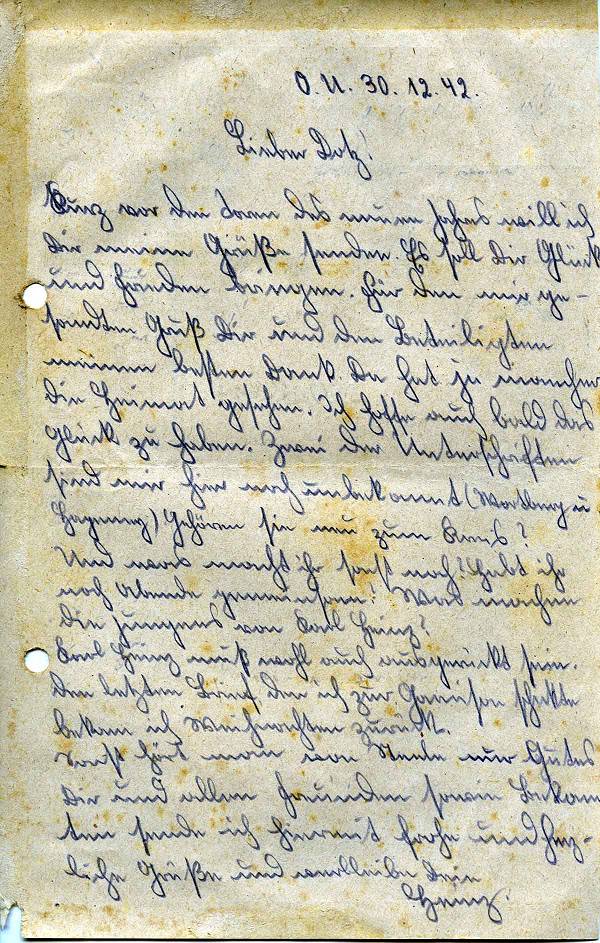 O.U. 30.12.42.
Lieber Dotz!
Kurz vor den Toren des neuen Jahres will ich
Dir meine Grüße senden. Es soll Dir Glück
und Frieden bringen. Für den mir ge-
sandten Gruß Dir und den Beteiligten
meinen besten Dank. Da hat ja mancher
die Heimat gesehen. Ich hoffe auch bald das
Glück zu haben. Zwei der Unterschriften
sind mir hier noch unbekannt (Wartberg u
) Gehören sie neu zum Kreis?
Und was macht ihr sonst noch? Habt ihr
noch Abende gemeinsam? Was machen
die Jungens von Karl Heinz?
Karl Heinz muß wohl auch ausgerückt sein.
Den letzten Brief den ich zur Garnison schickte
bekam ich Weihnachten zurück.
Sonst hört man von Steele nur Gutes
Dir und allen Freunden sowie Bekann
ten sende ich hiermit frohe und herz-
liche Grüße und verbleibe Dein
Heinz.